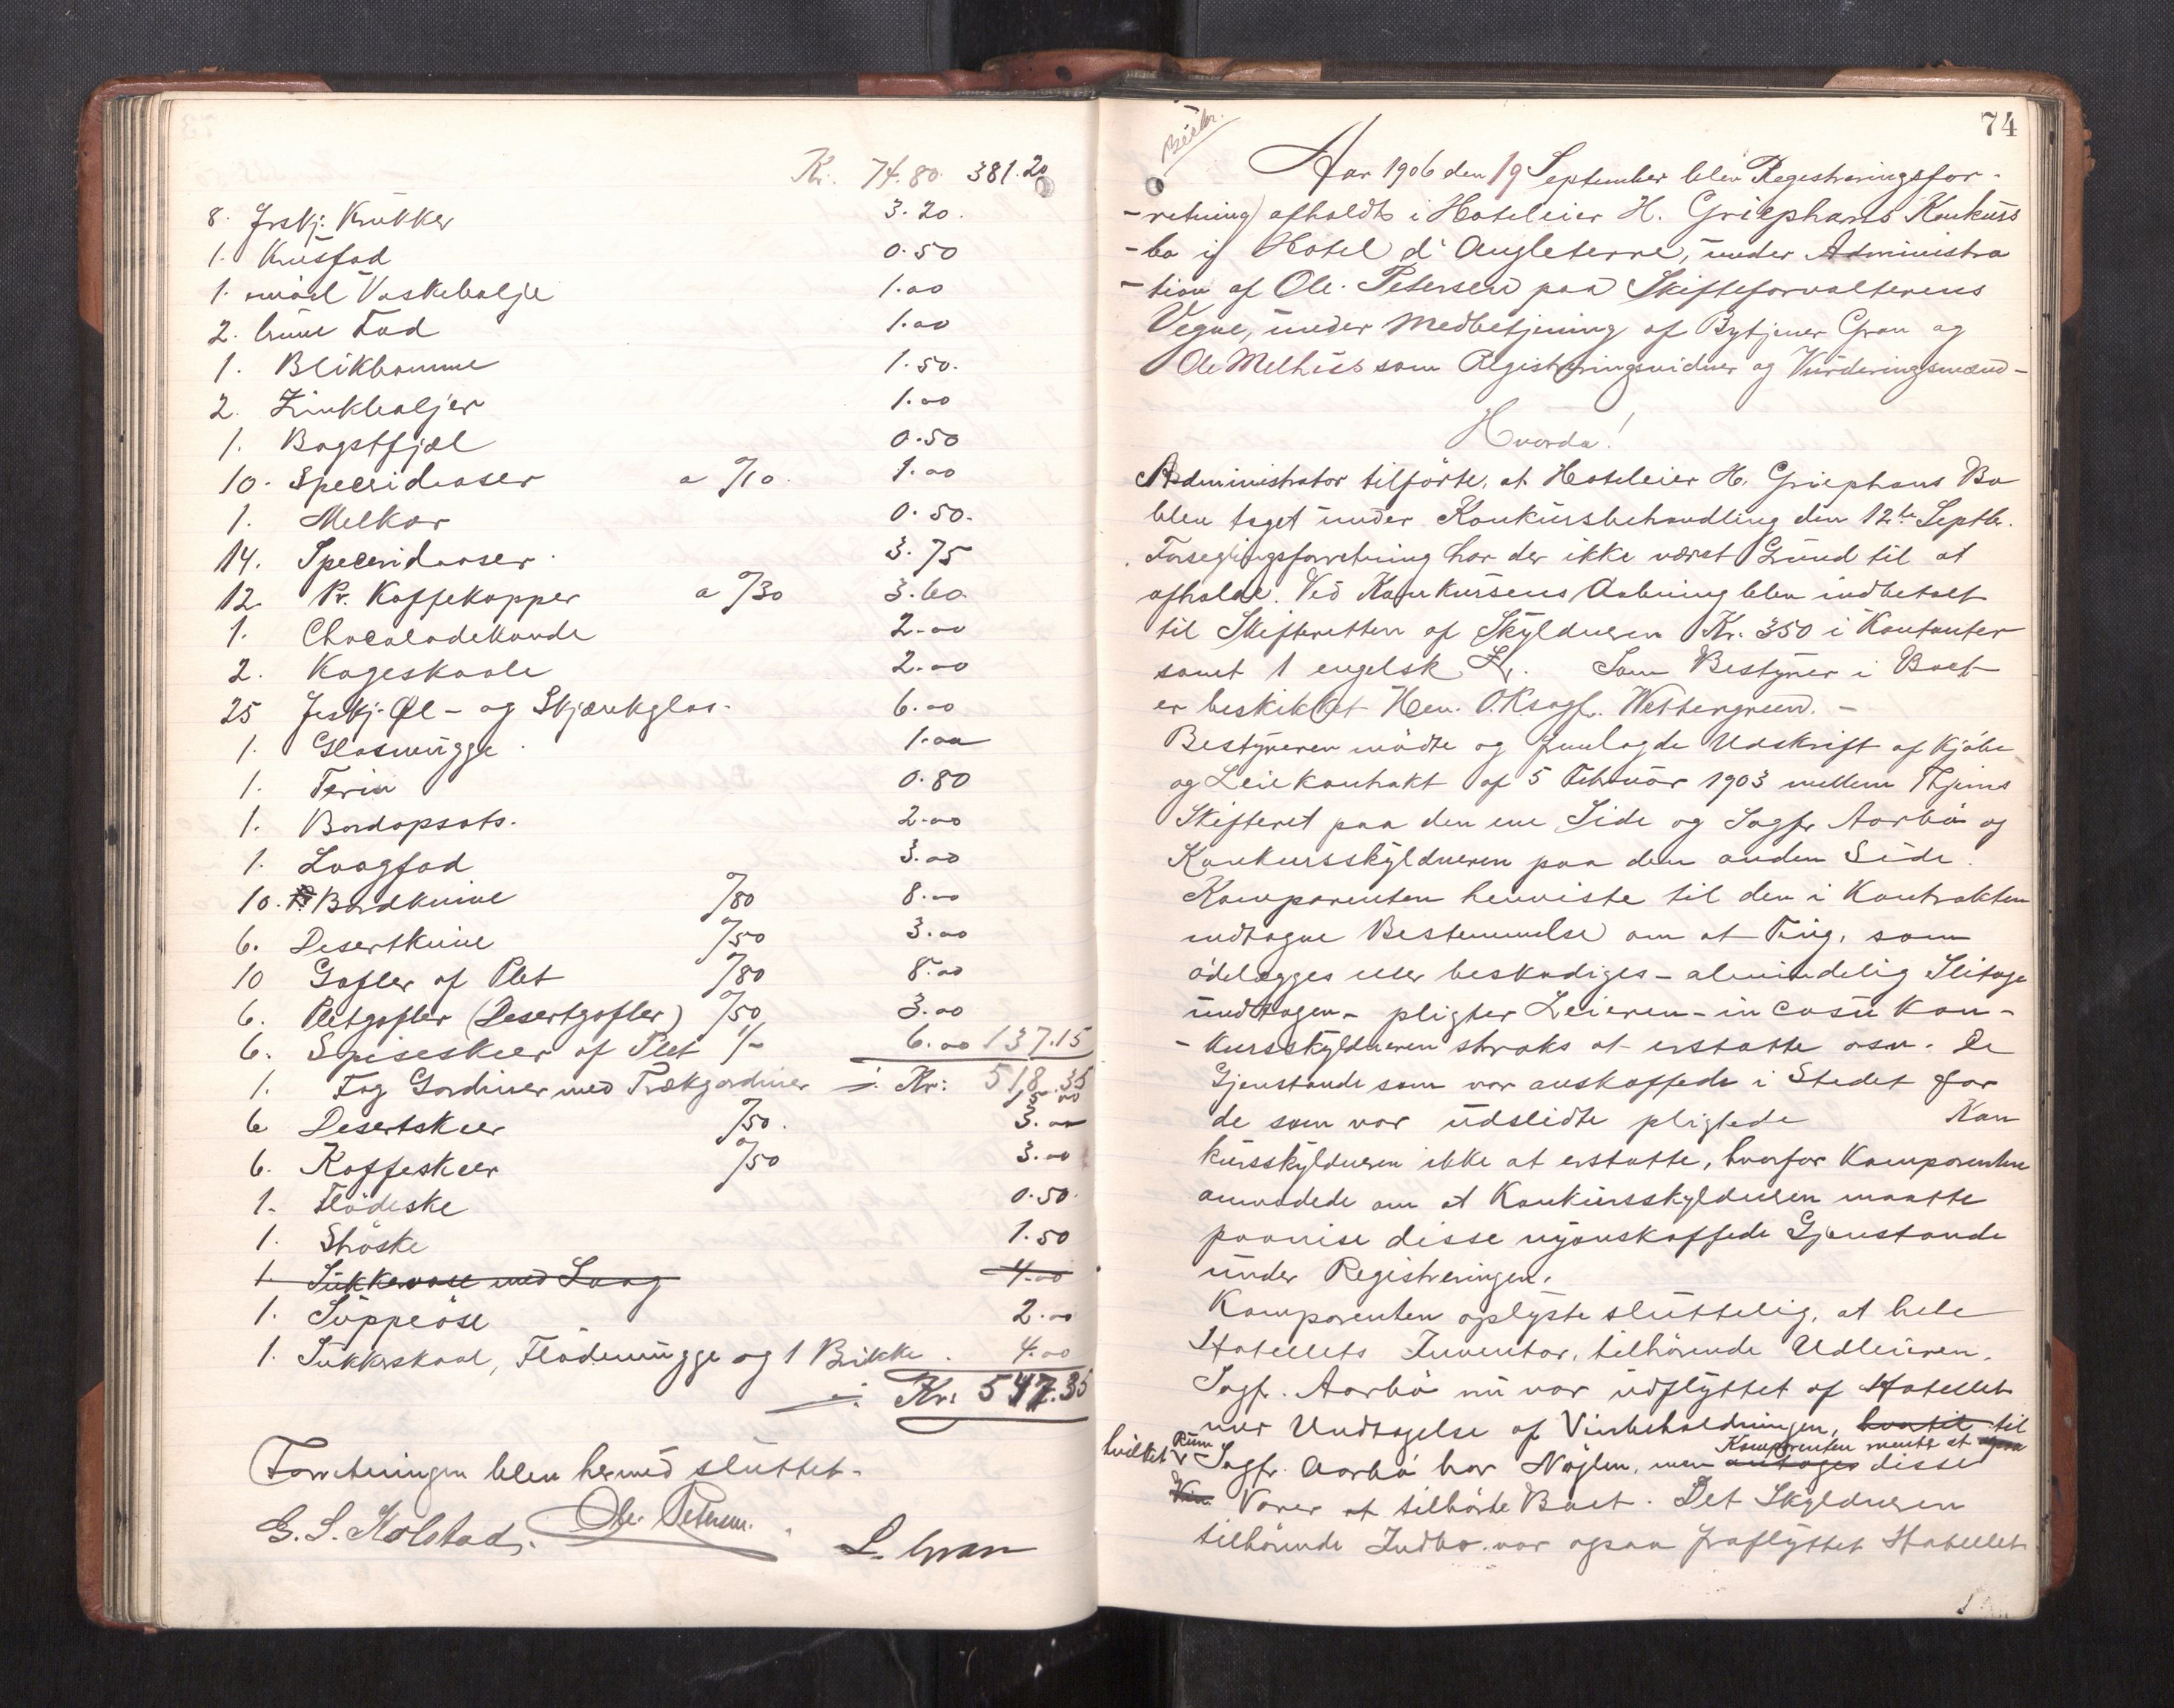 Kr. 74.80. 381.20
8. Forskj. Krukker 3.20.
1. Krusfad 0.50
1. emael Vaskebalje 1.00
2. brune Fad 1.00
1. Blikkomme 1.50.
2. Zinkbaljer 1.00
1. Bagstfjæl 0.50
10. Specridaaser a "/10. 1.00
1. Melkar 0.50.
14. Speceridaaser. 3.75
12. Pr. Kaffekopper a "/30 3.60.
1. Chocoladekande 2.00
2. Kageskaale 2.00
25 Forskj. Øl- og Skjænkglas. 6.00
1. Glasmugge. 1.00
1. Terin 0.80
1. Bordopsats. 2.00
1. Laagfad 3.00
10. Bordknive "/80 8.00
6. Desertknive "/50 3.00
10 Gafler af Plet "/80 8.00
6. Pletgafler (Desertgafler) "/50 3.00
6. Spiseskeer af Plet 1/- 6.00 137.15
1. Fag Gardiner med Trækgardiner i. Kr: 518.35
15.00
6 Desertskeer "/50. 3.00
6. Kaffeskeer "/50 3.00
1. Flødeske 0.50.
1. Strøske 1.50
1. Sukkervase med Laag 4.00
1. Suppeøse 2.00
1. Sukkerskaal, Flødemugge og 1 Brikke. 4.00
i. Kr: 547.35
Forretningen blev hermed sluttet.
G. S. Kolstad. Ole Petersen. L. Gran
74
Aar 1906 den 19 September blev Registreringsfor-
-retning afholdt i Hoteleier H. Griephans Konkurs
-bo i Hotel d'Angleterre, under Administra
-tion af Ole Petersen paa Skifteforvalterens
Vegne, under Medbetjening af Bytjener Gran og
Ole Melhus som Registreringsvidner og Vurderingsmænd-
Hvorda!
Administrator tilførte, at Hoteleier H. Griephans Bo
blev taget under Konkursbehandling den 12te Septbr.
Forseglingsforretning har der ikke været Grund til at
afholde. Ved Konkursens Aabning blev indbetalt
til Skifteretten af Skyldneren Kr. 350 i Kontanter
samt 1 engelsk £. Som Bestyrer i Boet
er beskikket Hr. O.R.sagf. Wettergreen. -
Bestyreren mødte og fremlagde Udskrift af Kjøbe
og Leiekontrakt af 5 Februar 1903 mellem Thjems
Skifteret paa den ene Side og Sagfr Aarbø og
Konkursskyldneren paa den anden Side.
Komparenten henviste til den i Kontrakten
indtagne Bestemmelse om at Ting, som
ødelægges eller beskadiges - almindelig Slitage
undtagen - pligter Leieren - in casu Kon-
-kursskyldneren straks at erstatte osv. De
Gjenstande som var anskaffede i Stedet for
de som var udslidte pligtede Kon
kursskyldneren ikke at erstatte, hvorfor Komparenten
anmodede om at Konkursskyldneren maatte
paavise disse nyanskaffede Gjenstande
under Registreringen.
Komparenten oplyste sluttelig, at hele
Hotellets Inventar, tilhørende Udleieren,
Sagfr. Aarbø nu var udflyttet af Hotellet
med Undtagelse af Vinbeholdningen, hvortil til
hvilket Rum Sagfr. Aarbø har Nøglen, men antages Komparenten mente at disse
Vin Varer at tilhørte Boet. Det Skyldneren
tilhørende Indbo var ogsaa fraflyttet Hotellet